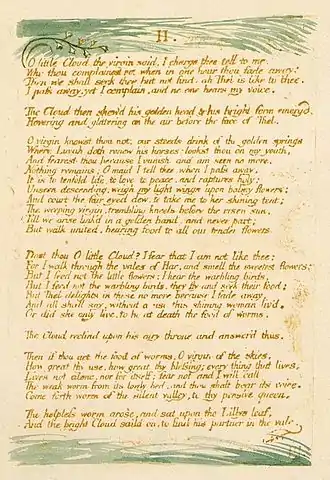 II.
O little Cloud the virgin said, I charge thee tell to me,
Why thou complainest not when in one hour thou fade away:
Then we shall seek thee but not find; ah Thel is like to thee.
I pass away, yet I complain, and no one hears my voice.
The Cloud then shew'd his golden head & his bright form emerg'd,
Hovering and glittering on the air before the face of Thel.
O virgin know'st thou not, our steeds drink of the golden springs
Where Luvah doth renew his horses: look'st thou on my youth,
And fearest thou because I vanish and am seen no more,
Nothing remains; O maid I tell thee, when I pass away,
It is to tenfold life, to love, to peace, and raptures holy:
Unseen descending, weigh my light wings upon balmy flowers;
And court the fair eyed dew, to take me to her shining tent;
The weeping virgin, trembling kneels before the risen sun,
Till we arise link'd in a golden band, and never part;
But walk united, bearing food to all our tender flowers
Dost thou O little Cloud? I fear that I am not like thee;
For I walk through the vales of Har, and smell the sweetest flowers;
But I feed not the little flowers: I hear the warbling birds,
But I feed not the warbling birds, they fly and seek their food;
But Thel delights in these no more because I fade away,
And all shall say, without a use this shining woman liv'd,
Or did she only live, to be at death the food of worms.
The Cloud reclind upon his airy throne and answerd thus.
Then if thou art the food of worms, O virgin of the skies,
How great thy use, how great thy blessing; every thing that lives,
Lives not alone, nor for itself: fear not and I will call
The weak worm from its lowly bed, and thou shalt hear its voice.
Come forth worm of the silent valley, to thy pensive queen.
The helpless worm arose, and sat upon the Lillys leaf,
And the bright Cloud saild on, to find his partner in the vale.